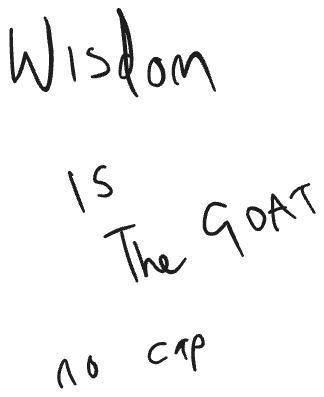 Wisdom
is
The GOAT
no cap